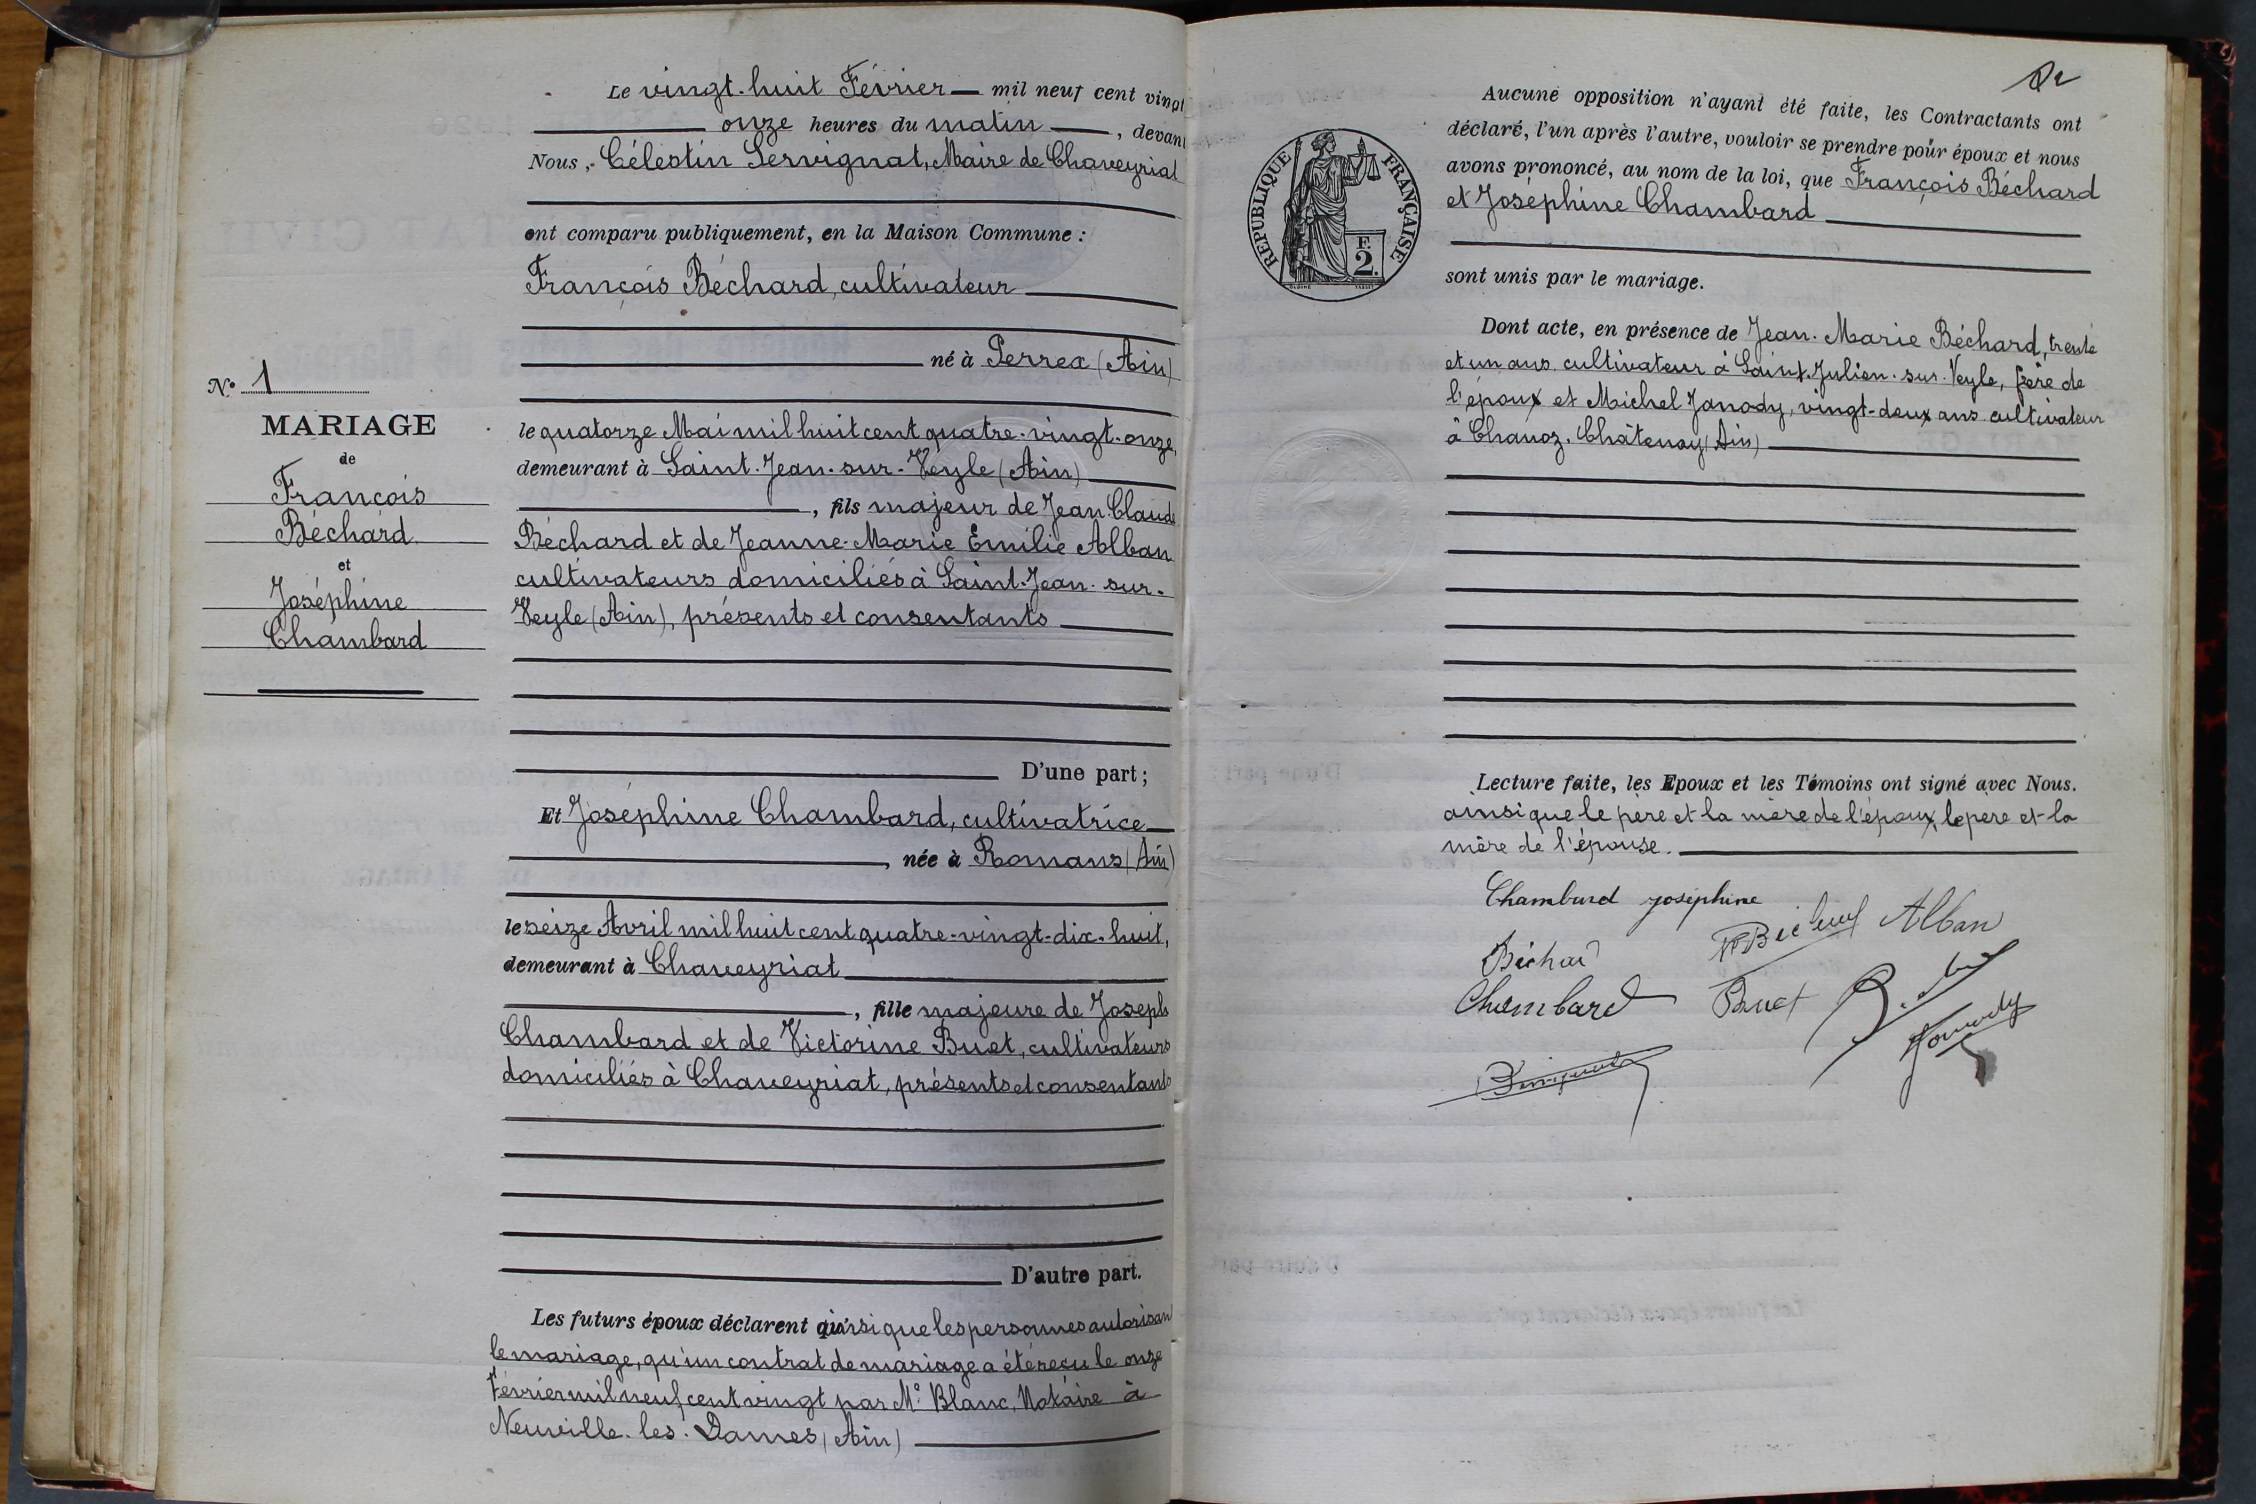 Le vingt-huit Février — mil neuf cent vingt
onze heures du matin —, devant
Nous, Célestin Servignat, Maire de Chaveyriat
ont comparu publiquement, en la Maison Commune :
François Béchard, cultivateur
né à Perrex (Ain)
le quatorze Mai mil huit cent quatre-vingt-onze,
demeurant à Saint-Jean-sur-Veyle (Ain)
, fils majeur de Jean Claude
Béchard et de Jeanne-Marie Emilie Alban
cultivateurs domiciliés à Saint-Jean-sur-
Veyle (Ain), présents et consentants
D'une part ;
Et Joséphine Chambard, cultivatrice
, née à Romans (Ain)
le seize Avril mil huit cent quatre-vingt-dix-huit,
demeurant à Chaveyriat
, fille majeure de Joseph
Chambard et de Victorine Buet, cultivateurs
domiciliés à Chaveyriat, présents et consentants
D'autre part.
Les futurs époux déclarent ainsi que les personnes autorisant
le mariage, qu'un contrat de mariage a été reçu le onze
Février mil neuf cent vingt par Me Blanc, Notaire à
Neuville-les-Dames (Ain)
N° 1
MARIAGE
de
François
Béchard
et
Joséphine
Chambard
Aucune opposition n'ayant été faite, les Contractants ont
déclaré, l'un après l'autre, vouloir se prendre pour époux et nous
avons prononcé, au nom de la loi, que François Béchard
et Joséphine Chambard
sont unis par le mariage.
RÉPUBLIQUE FRANÇAISE
F.
2.
Dont acte, en présence de Jean-Marie Béchard, trente
et un ans, cultivateur à Saint-Julien-sur-Veyle, frère de
l'époux et Michel Janody, vingt-deux ans, cultivateur
à Chanoz-Châtenay (Ain)
Lecture faite, les Epoux et les Témoins ont signé avec Nous.
ainsi que le père et la mère de l'époux, le père et la
mère de l'épouse.
Chambard joséphine
Béchard Alban
Chambard Buet
Janody
Servignat